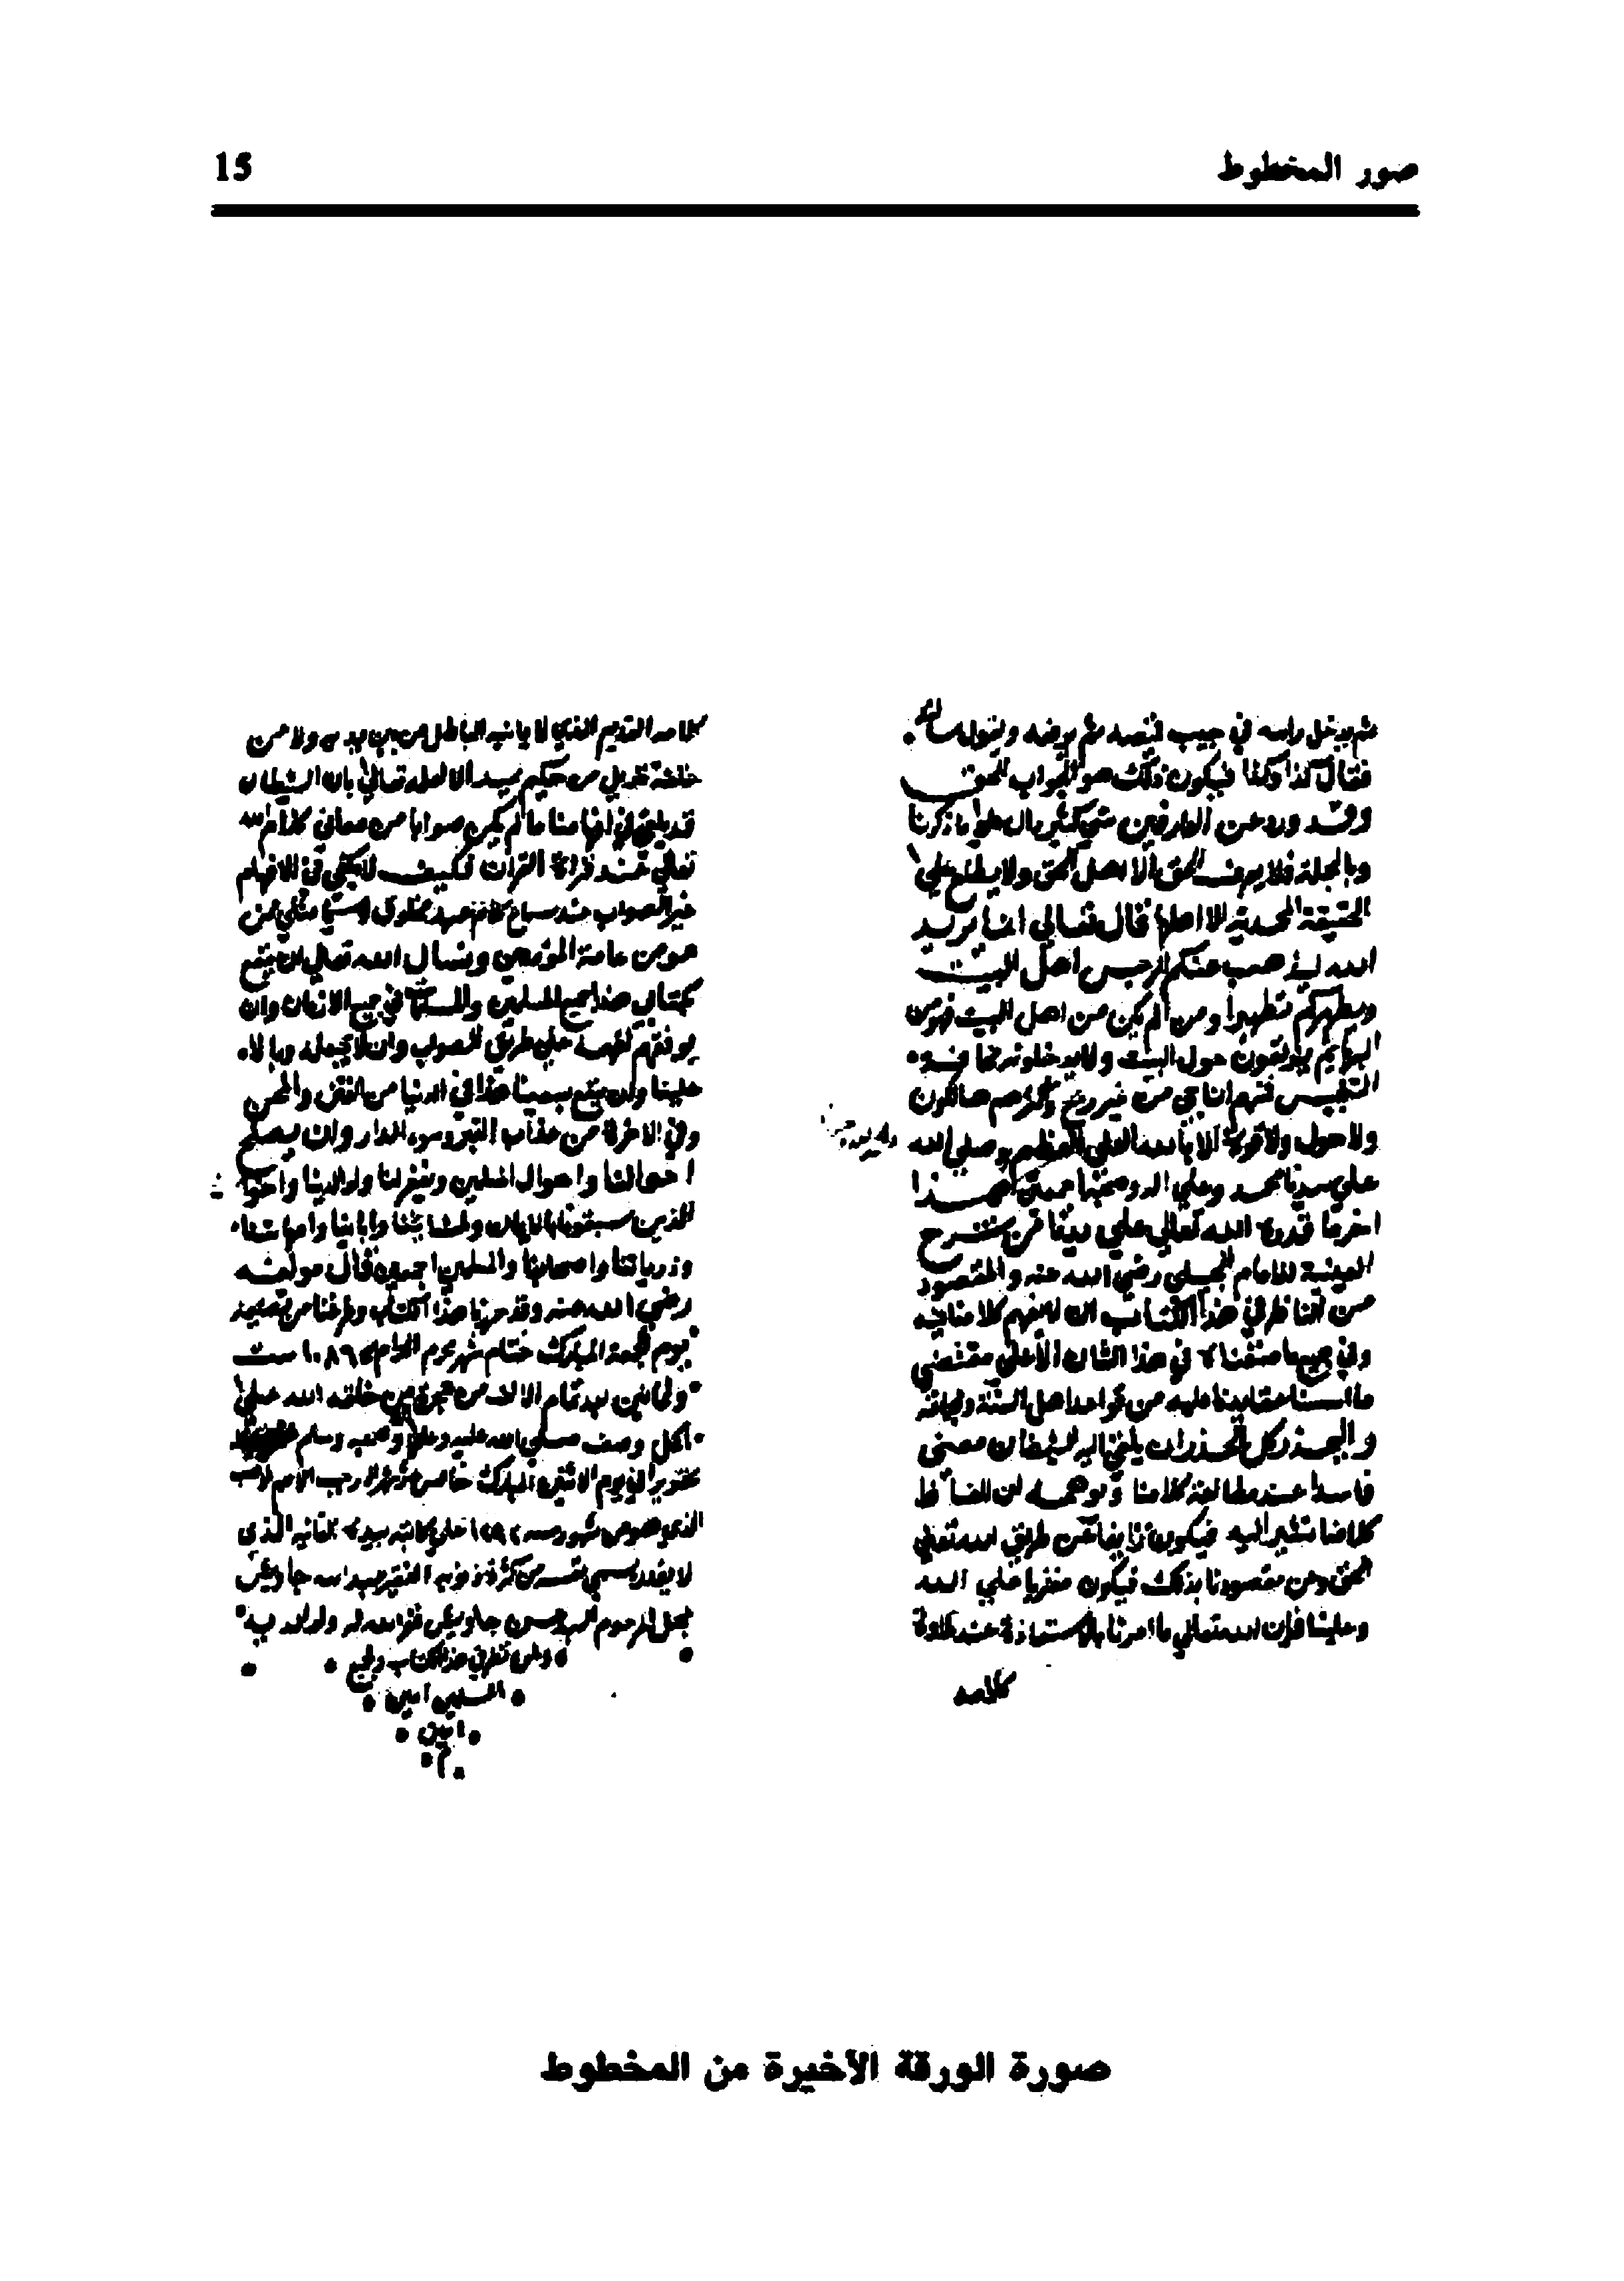 صور المخطوط
15
ثم يدخل راسه في جيب قميصه ثم يرفعه ويقول
فقال كذا وكذا فيكون ذلك هو الجواب الحق
وقد ورد عن العارفين شي كثير على ما ذكرنا
وبالجملة فلا يعرف الحق الا اهل الحق ولا يطلع على
الحقيقة المحمدية الا اهلها قال تعالى انما يريد
الله ليذهب عنكم الرجس اهل البيت
ويطهركم تطهيرا ومن لم يكن من اهل البيت فهو من
البهايم يدورون حول البيت ولا يدخلونه
فمنهم ناجي من غير وكثرهم هالكون
ولا حول ولا قوة الا بالله العلي العظيم وصلى الله
على سيدنا محمد وعلى اله وصحبه اجمعين هذا
اخر ما قدره الله تعالى على يدنا من شرح
العينية للامام الجيلي رضي الله عنه والمقصود
من الناظر في هذا الكتاب ان لا يفهم كلامنا فيه
وفي جميع ما صنفناه في هذا الشان الا على مقتضى
ما اسسنا عقايدنا عليه من قواعد اهل السنة والجماعة
والحذر كل الحذر ان يلقي اليه الشيطان معنى
فاسدا عند مطالعة كلامنا ويوهمه ان الفاظ
كلامنا تشير اليه فيكون زايغا عن طريق الله تعالى
الحق وعن مقصودنا بذلك فيكون مفتريا على الله
وعلينا فان الله تعالى ما امرنا بالاستعاذة عند تلاوة
كلامه
كلامه القديم الذي لا ياتيه الباطل من بين يديه ولا من
خلفه تنزيل من حكيم حميد الا لعلمه تعالى بان الشيطان
قد يلقي في افهامنا ما لم يكن صوابا من معاني كلام الله
تعالى عند قراة القران فكيف لا يلقي في الافهام
غير الصواب عند سماع كلام عبد مخلوق مثلي ممن
هو من عامة المؤمنين ونسال الله تعالى ان ينفع
بكتابي هذا جميع المسلمين والمسلمات في جميع الازمان وان
يوفقهم لفهمه على طريق الصواب وان لا يجعله وبالا
علينا وان ينفع بسببنا هذا في الدنيا من الفتن والمحن
وفي الاخرة من عذاب القبر وسوء الدار وان يصلح
احوالنا واحوال المسلمين ويغفر لنا ولوالدينا
الذين سبقونا بالايمان ولمشايخنا وابائنا وامهاتنا
وذرياتنا واصحابنا والمسلمين اجمعين قال مولفه
رضي الله عنه وقد حررنا هذا الكتاب وفرغنا من تصنيفه
يوم الجمعة المبارك ختام شهر محرم الحرام ١٠٨٦ ست
وثمانين بعد تمام الالف من هجرة من خلقه الله على
اكمل وصف صلى الله عليه وعلى اله وصحبه وسلم
تحريرا في يوم الاثنين المبارك خامس شهر رجب الاصم
الذي هو من شهور سنة على كاتبه بيده الفانية الذي
لا يقدر يسمي نفسه من كثرة ذنوبه الفقير عبد الله جاويش
نجل المرحوم السيد حسن جاويش غفر الله له ولوالديه
ولمن نظر في هذا الكتاب ولجميع
المسلمين امين
امين
م
صورة الورقة الأخيرة من المخطوط